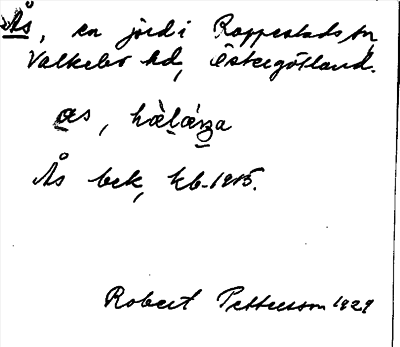 Ås, en jord i Rappestads sn,
Valkebo hd, Östergötland.
Ås bck, kb. 1915.
Robert Pettersson 1929